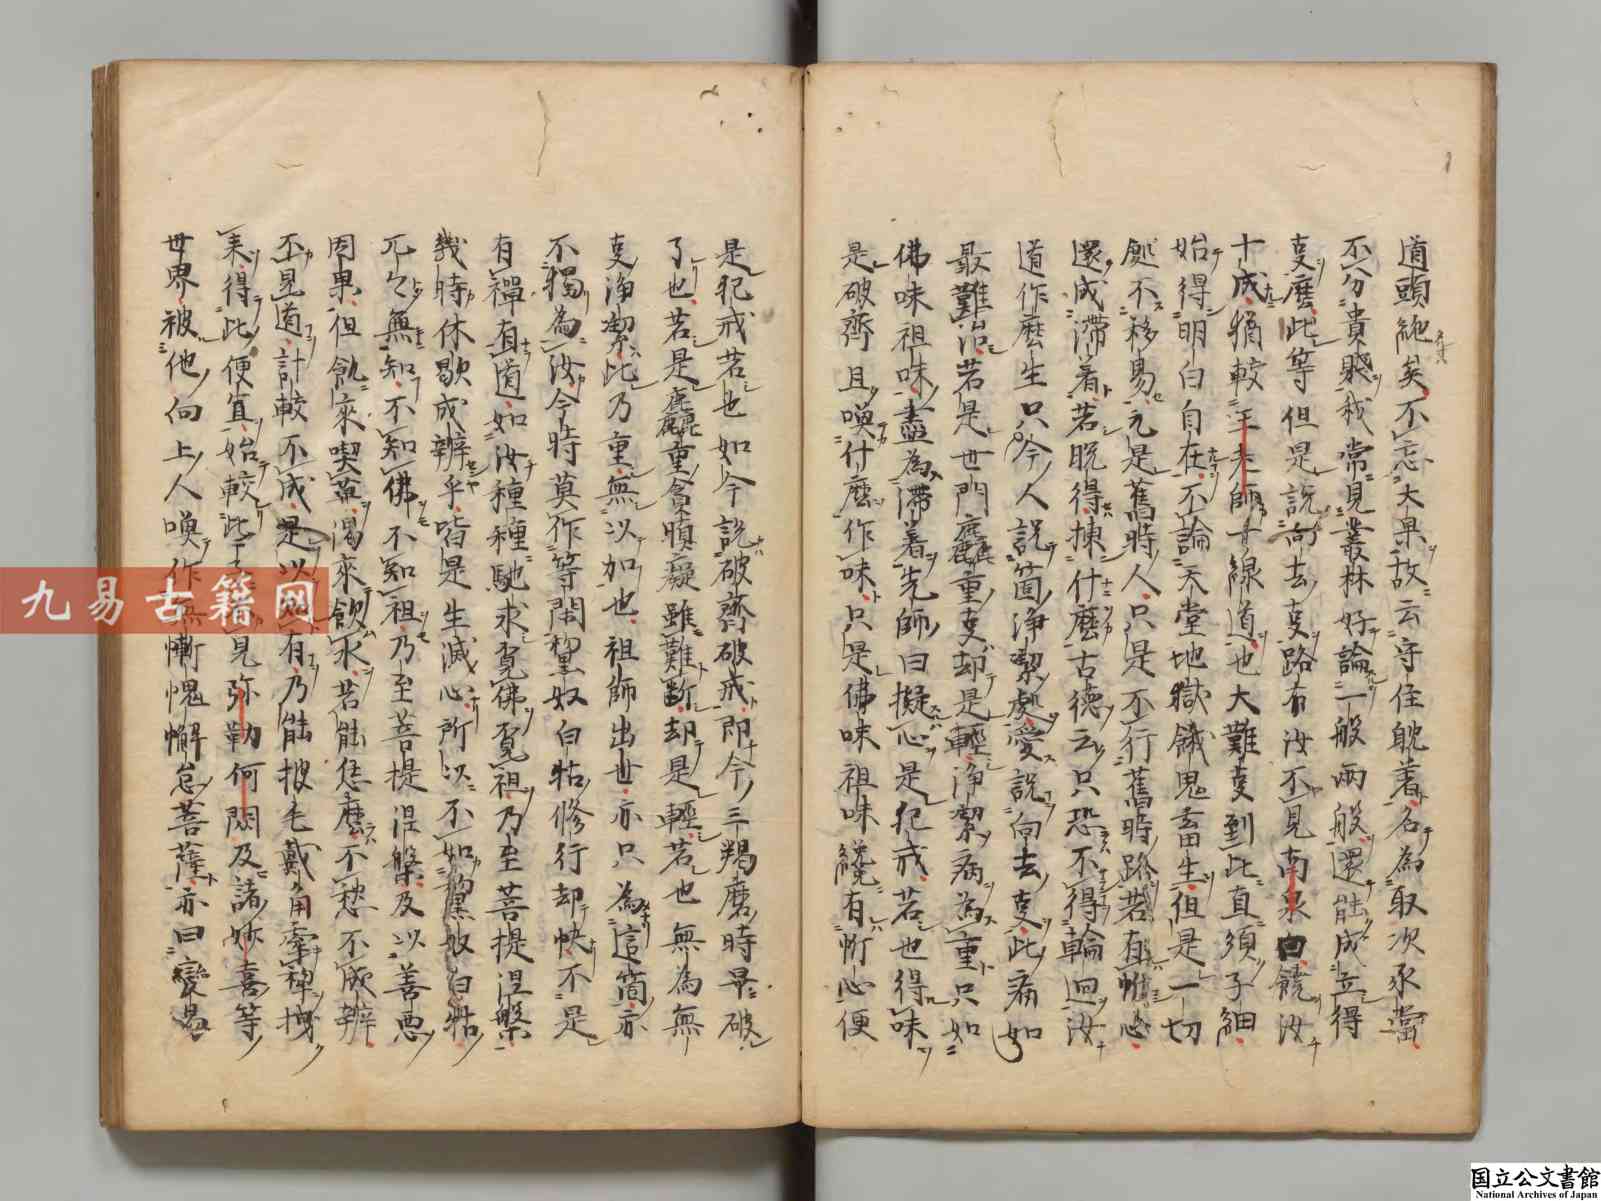 道頭絁矣不忘大果故云守住躭着名為取次承當
不分貴賎我常見叢林好論一般兩般還能成立得
叓麽此等但是説向去叓路有汝不見南泉曰饒汝
十成猶較王老師一線道也大難叓到此直須子細
始得明白自在不論天堂地獄餓鬼畜生但是一切
䖏不移易元是舊時人只是不行舊時路若有忻心
還成滞着若脱得揀什麽古徳云只恐不得輪迴汝
道作麽生只今人説箇浄㓗䖏愛説向去叓此病
最難治若是世門麤重叓却是輕浄潔病為重只如
佛味祖味盡為滞着先師曰擬心是犯戒若也得味
是破齋且喚什麽作味只是佛味祖味纔有忻心便
是犯戒若也如今説破齋破戒即今三羯磨時早破
了也若是麤重貪瞋癡雖難断却是輕若也無為無
叓浄潔此乃重無以加也祖師出世亦只為這箇亦
不獨為汝今時莫作等閑黧奴白牯修行却快不是
有禪有道如汝種種馳求覓佛覓祖乃至菩提涅槃
幾時休歇成辨乎皆是生滅心所以不如黧奴白牯
兀々無知不知佛不知祖乃至菩提涅槃及以善悪
因果但飢來喫草渇來飲水若能恁麽不愁不成辨
不見道計較不成是以知有乃能披毛戴角牽犂拽
耒得此便宜始較此子不見弥勒何閦及諸妙喜等
世界被他向上人喚作無慚愧懈怠菩薩亦曰變易
九易古籍网
国立公文書館
National Archives of Japan